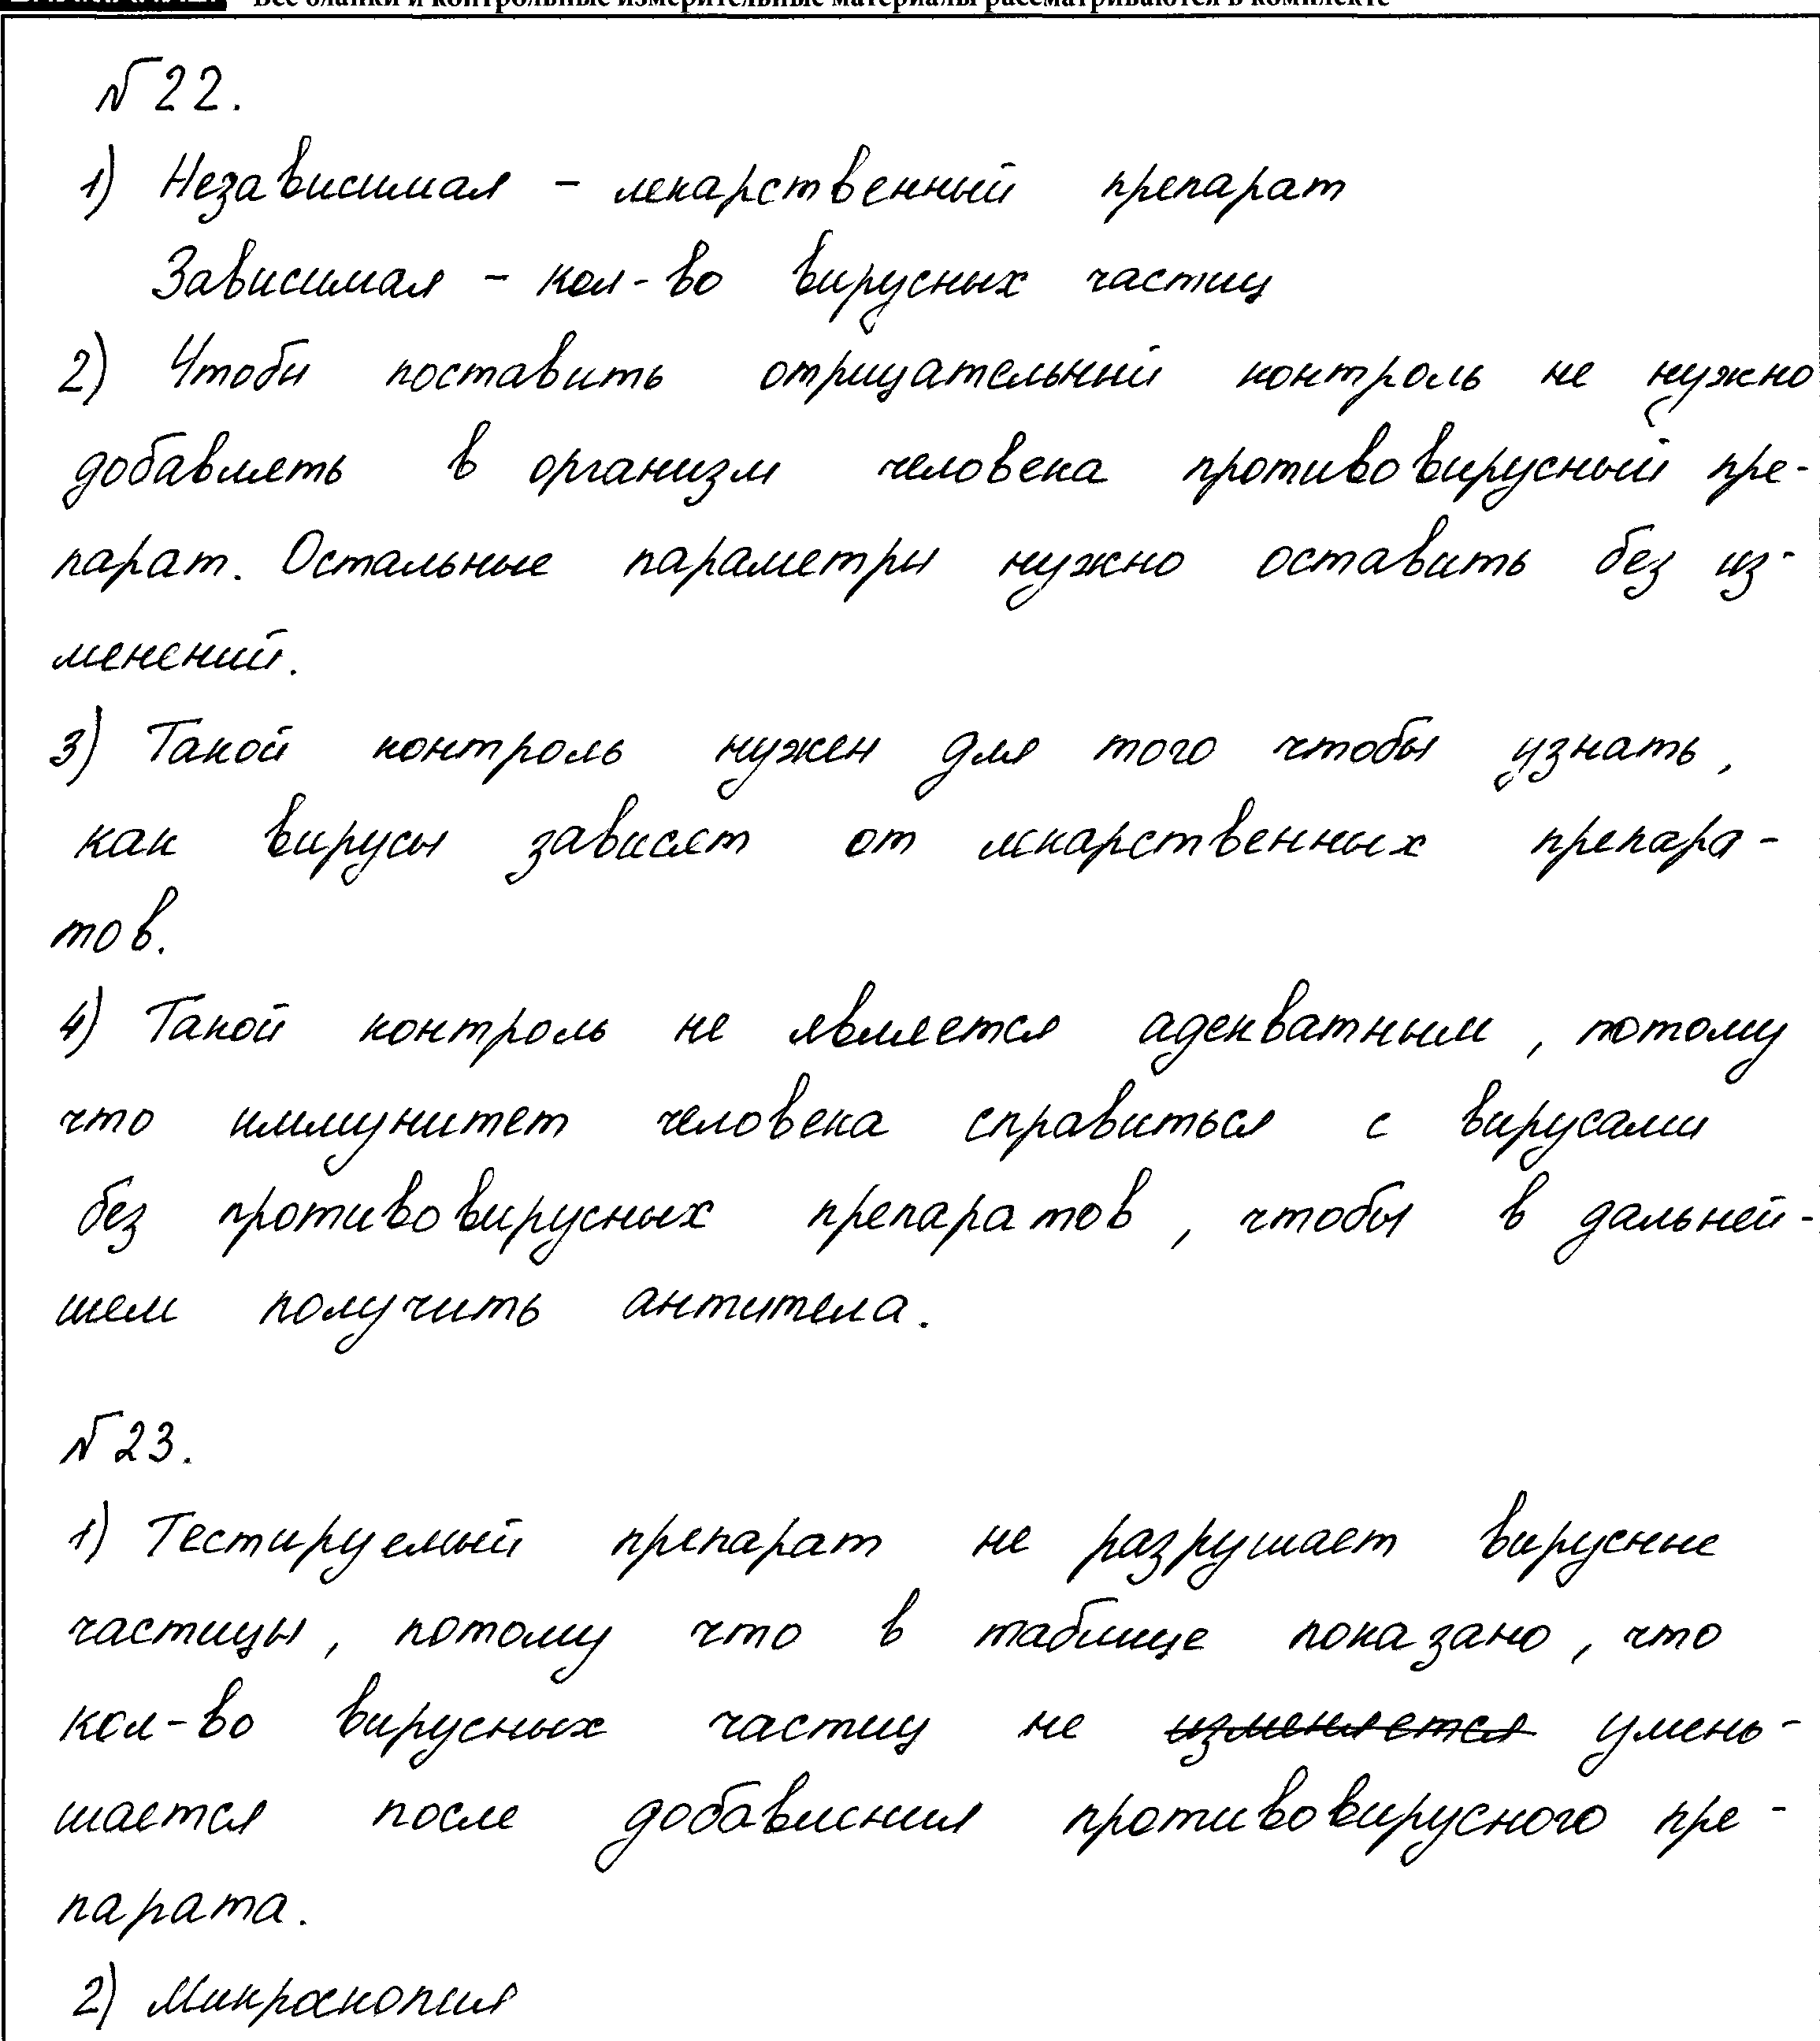 Все бланки и контрольные измерительные материалы рассматриваются в комплекте
№22.
1) Независимая - лекарственный препарат
Зависимая - кол-во вирусных частиц
2) Чтобы поставить отрицательный контроль не нужно
добавлять в организм человека противовирусный пре-
парат. Остальные параметры нужно оставить без из-
менений.
3) Такой контроль нужен для того чтобы узнать,
как вирусы зависят от лекарственных препара-
тов.
4) Такой контроль не является адекватным, потому
что иммунитет человека справиться с вирусами
без противовирусных препаратов, чтобы в дальней-
шем получить антитела.
№23.
1) Тестируемый препарат не разрушает вирусные
частицы, потому что в таблице показано, что
кол-во вирусных частиц не изменяется умень-
шается после добавления противовирусного пре-
парата.
2) Микроскопия